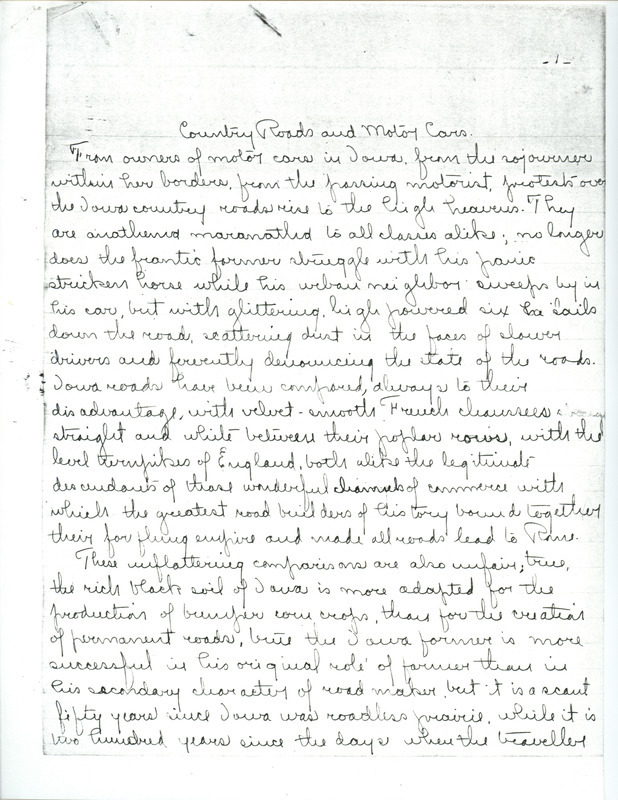 -1-
Country Roads and Motor Cars.
From owners of motor cars in Iowa, from the sojourner
within her borders, from the passing motorist, protests over
the Iowa country roads rise to the high heavens. They
are anathema maranatha to all classes alike; no longer
does the frantic farmer struggle with his panic
stricken horse while his urban neighbor sweeps by in
his car, but with glittering, high powered six he sails
down the road, scattering dust in the faces of slower
drivers and fervently denouncing the state of the roads.
Iowa roads have been compared, always to their
disadvantage, with velvet-smooth French chaussees
straight and white between their poplar rows, with the
level turnpikes of England, both alike the legitimate
descendants of those wonderful channels of commerce with
which the greatest road builders of history bound together
their far flung empire and made all roads lead to Rome.
These unflattering comparisons are also unfair; true,
the rich black soil of Iowa is more adapted for the
production of bumper corn crops, than for the creation
of permanent roads, true the Iowa farmer is more
successful in his original role of farmer than in
his secondary character of road maker, but it is a scant
fifty years since Iowa was roadless prairie, while it is
two hundred years since the days when the traveller